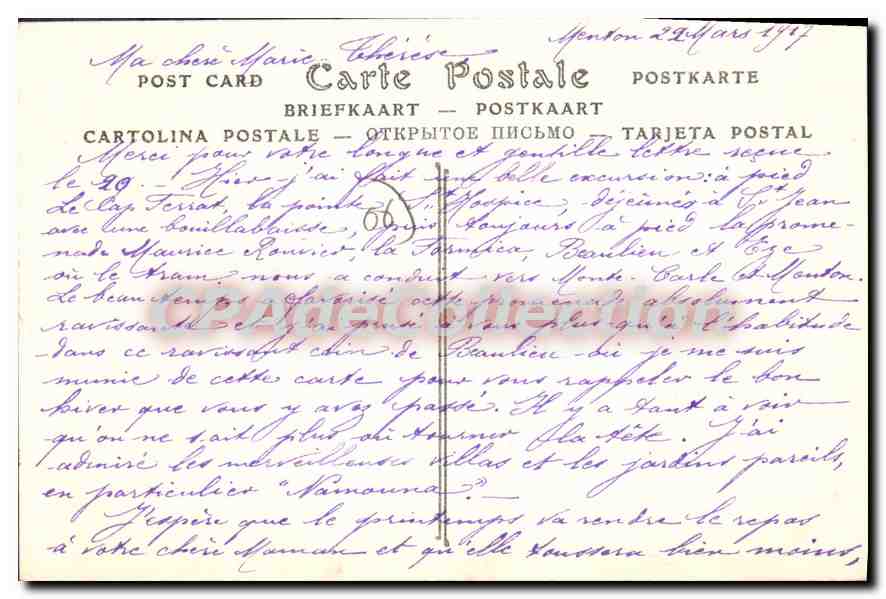 Menton 22 Mars 1917
Ma chère Marie Thérèse,
POST CARD Carte Postale POSTKARTE
BRIEFKAART — POSTKAART
CARTOLINA POSTALE — ОТКРЫТОЕ ПИСЬМО — TARJETA POSTAL
Merci pour votre longue et gentille lettre reçue
le 20. — Hier j'ai fait une belle excursion: à pied
Le Cap Ferrat, la pointe St Hospice, déjeuné à St Jean
06
avec une bouillabaisse, puis toujours à pied la prome-
nade Maurice Rouvier, la Formica, Beaulieu et Eze
où le tram nous a conduit vers Monte-Carle et Menton.
Le beau temps a favorisé cette promenade absolument
ravissante et j'ai pensé à vous plus qu'à l'habitude
dans ce ravissant coin de Beaulieu où je me suis
munie de cette carte pour vous rappeler le bon
hiver que vous y avez passé. Il y a tant à voir
qu'on ne sait plus où tourner la tête. J'ai
admiré les merveilleuses villas et les jardins pareils,
en particulier "Namouna". —
J'espère que le printemps va rendre le repos
à votre chère Maman et qu'elle toussera bien moins,
CPAdeCollection